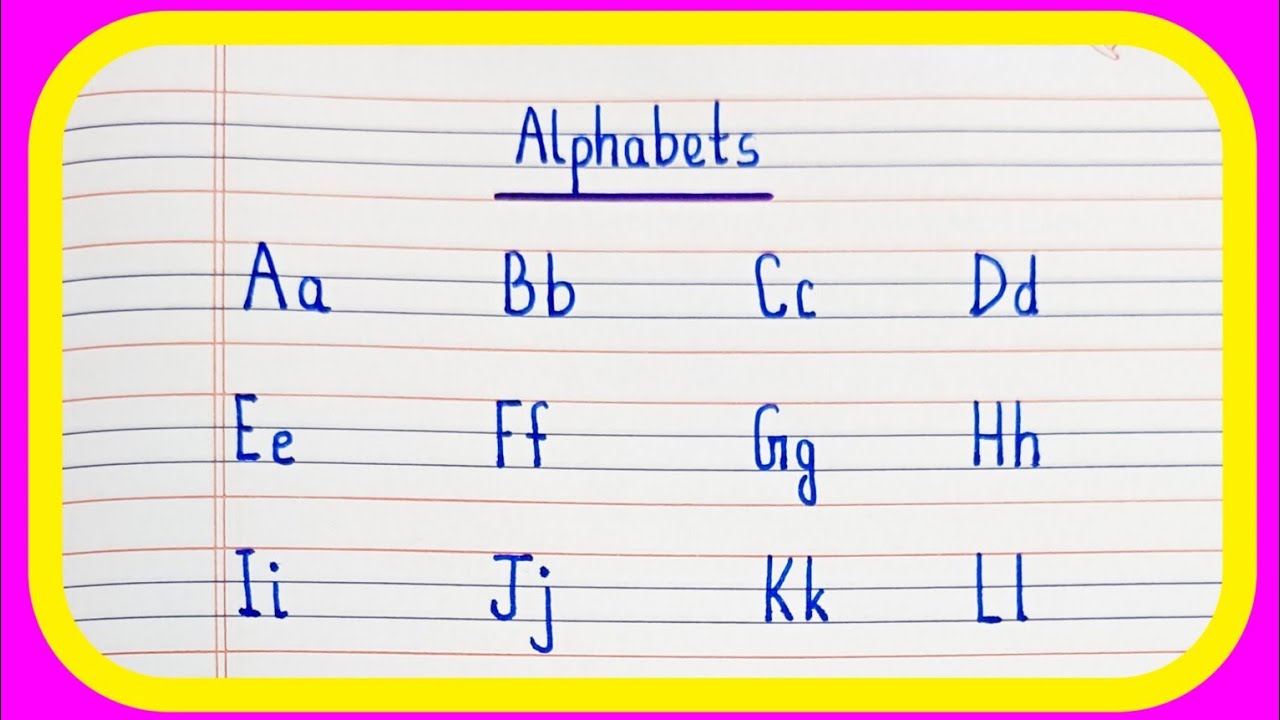 Alphabets
Aa Bb Cc Dd
Ee Ff Gg Hh
Ii Jj Kk Ll